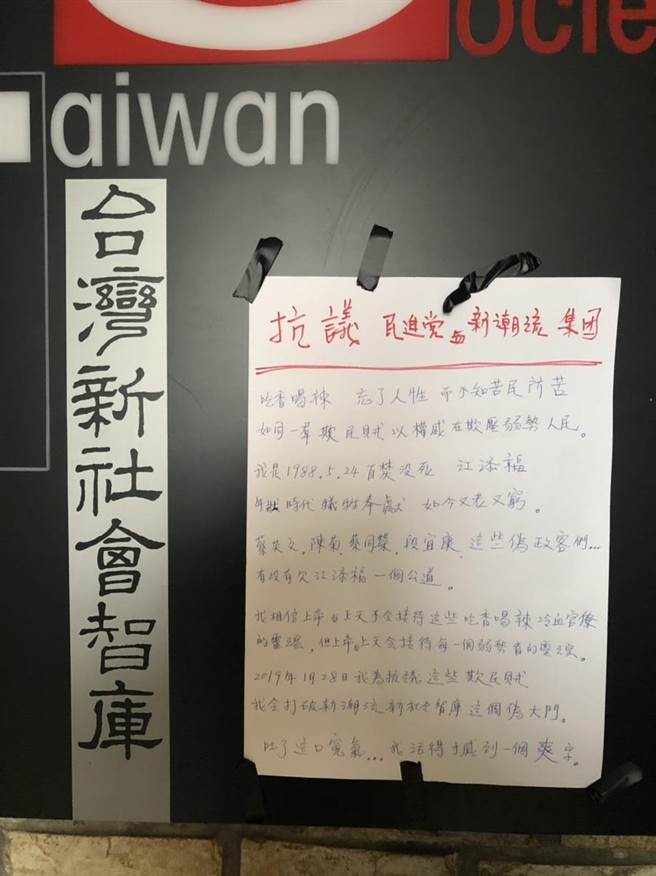 ocie
aiwan
台灣新社會智庫
抗議 民進党 新潮流 集团
吃香喝辣 忘了人性 而不知苦民所苦
如同一羣欺民賊以權威在欺壓弱勢人民。
我是1988.5.24自焚没死 江添福
年壯時代犠牲奉獻 如今又老又窮。
蔡英文.陳菊.蔡同榮.段宜康.這些偽政客們...
有没有欠江添福一個公道。
我相信上帝 上天不会接待這些吃香喝辣冷血官僚
的靈魂,但上帝 上天会接待每一個弱勢者的靈魂。
2019年1月28日我為抗議這些欺民賊
我会打破新潮流新社会智庫這個偽大門。
吐了這口寃氣...我活得才感到一個爽字。